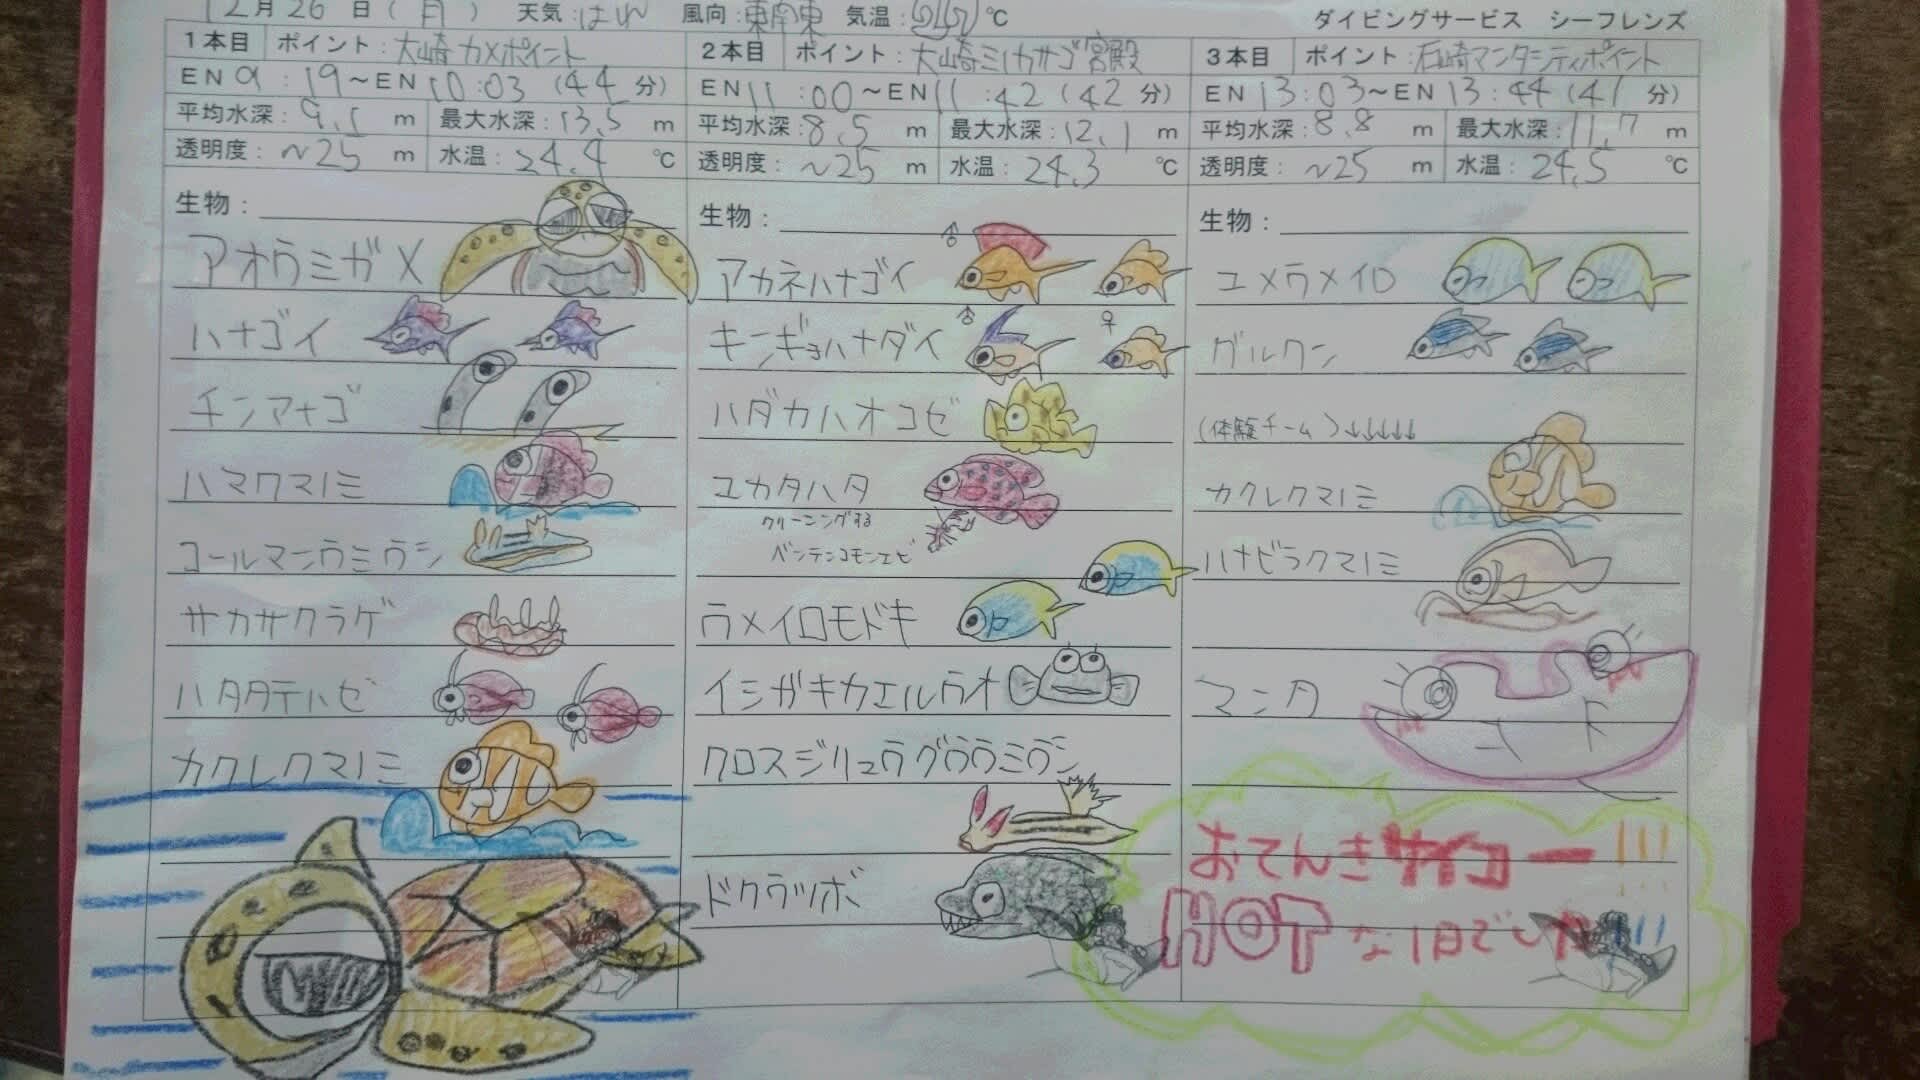 12月26日(月) 天気:はれ 風向:東南東 気温: ℃ ダイビングサービス シーフレンズ
1本目 ポイント:大崎カメポイント
EN 9:19～EN 10:03 (44分)
平均水深:9.5 m 最大水深:13.5 m
透明度:～25 m 水温:24.4 ℃
生物:
アオウミガメ
ハナゴイ
チンアナゴ
ハマクマノミ
コールマンウミウシ
サカサクラゲ
ハタタテハゼ
カクレクマノミ
2本目 ポイント:大崎ミノカサゴ宮殿
EN 11:00～EN 11:42 (42分)
平均水深:8.5 m 最大水深:12.1 m
透明度:～25 m 水温:24.3 ℃
生物:
アカネハナゴイ ♂
キンギョハナダイ ♂ ♀
ハダカハオコゼ
ユカタハタ
クリーニングする
ベンテンコモンエビ
ウメイロモドキ
イシガキカエルウオ
クロスジリュウグウウミウシ
ドクウツボ
3本目 ポイント:石崎マンタシティポイント
EN 13:03～EN 13:44 (41分)
平均水深:8.8 m 最大水深:11.7 m
透明度:～25 m 水温:24.5 ℃
生物:
ユメウメイロ
グルクン
(体験チーム)↓↓↓↓↓
カクレクマノミ
ハナビラクマノミ
マンタ
おてんきサイコー!!!
HOTな1日でした!!!